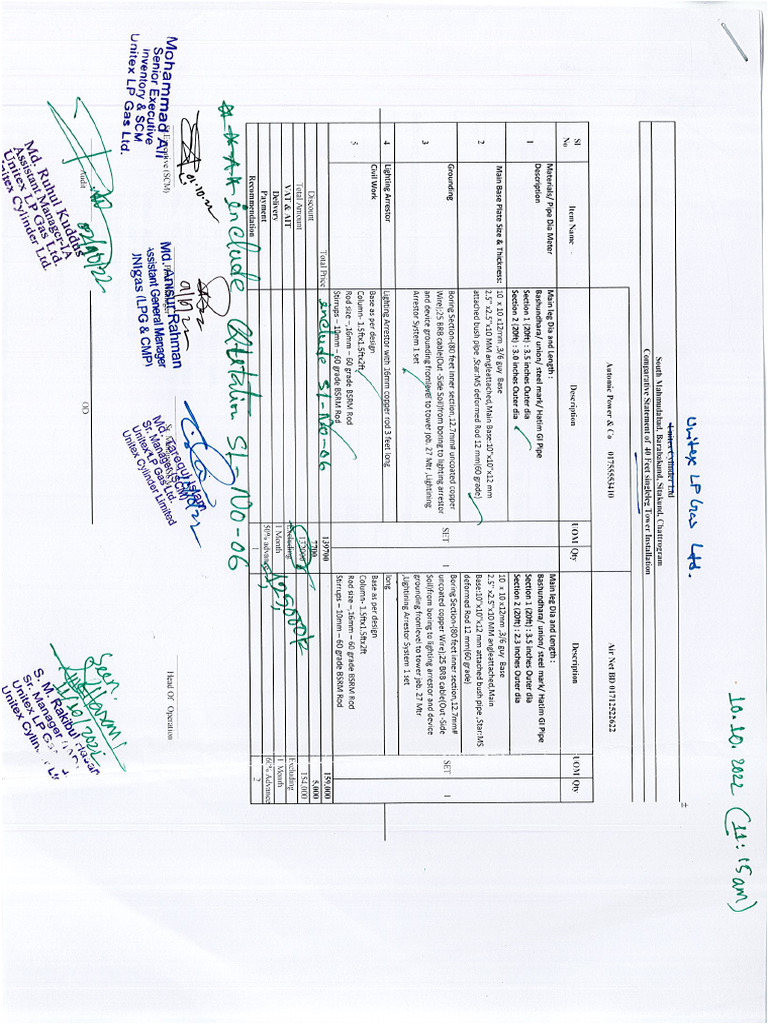 10.10.2022 (11:15am)
Unitex LP Gas Ltd.
Unitex Cylinder Ltd
South Mahmudabad, Barabakund, Sitakund, Chattrogram
Comparative Statement of 40 Feet singleleg Tower Installation
Autonic Power & Co 01755553410
Air Net BD 01712522622
Sl No
Item Name
Description
UOM
Qty
Description
UOM
Qty
1
Materials/ Pipe Dia Meter Description
Main leg Dia and Length :
Bashundhara/ union/ steel mark/ Hatim GI Pipe
Section 1 (20ft) : 3.5 inches Outer dia
Section 2 (20ft) : 3.0 inches Outer dia
Main leg Dia and Length :
Bashundhara/ union/ steel mark/ Hatim GI Pipe
Section 1 (20ft) : 3.5 inches Outer dia
Section 2 (20ft) : 2.3 inches Outer dia
2
Main Base Plate Size & Thickness:
10 x 10 x12mm ,3/6 guy Base
2.5" x2.5"x10 MM angleattached, Main Base:10"x10"x12 mm
attached bush pipe ,Star:MS deformed Rod 12 mm(60 grade)
10 x 10 x12mm ,3/6 guy Base
2.5" x2.5"x10 MM angleattached,Main
Base:10"x10"x12 mm attached bush pipe ,Star:MS
deformed Rod 12 mm(60 grade)
3
Grounding
Boring Section-(80 feet inner section,12.7mm# uncoated copper
Wire);25 BRB cable(Out -Side Soil)from boring to lighting arrestor
and device grounding fromlevel to tower job. 27 Mtr ,Lightining
Arrestor System 1 set
SET
1
Boring Section-(80 feet inner section,12.7mm#
uncoated copper Wire);25 BRB cable(Out -Side
Soil)from boring to lighting arrestor and device
grounding fromlevel to tower job. 27 Mtr
,Lightining Arrestor System 1 set
SET
1
4
Lighting Arrestor
Lighting Arrestor with 16mm copper rod 3 feet long
long
5
Civil Work
Base as per design
Column- 1.5ftx1.5ftx2ft
Rod size –,16mm – 60 grade BSRM Rod
Stirrups – 10mm – 60 grade BSRM Rod
Base as per design
Column- 1.5ftx1.5ftx2ft
Rod size –,16mm – 60 grade BSRM Rod
Stirrups – 10mm – 60 grade BSRM Rod
Total Price
include Sl-No-06
139700
159,000
Discount
7700
5,000
Total Amount
132000
154,000
125000tk
VAT & AIT
Excluding
Excluding
Delivery
1 Month
1 Month
Payment
50% advance
60% Advance
Recommendation
1
2
include Sl-No-06
Executive (SCM)
01.10.22
Mohammad Ali
Senior Executive
Inventory & SCM
Unitex LP Gas Ltd.
Md. Anisur Rahman
Assistant General Manager
UNIgas (LPG & CMP)
Md. Tarequl Islam
Sr. Manager-SCM
Unitex LP Gas Ltd.
Unitex Cylinder Limited
Head Of Operation
Seen
S. M. Rakibul Hasan
Sr. Manager
Unitex LP Gas
Audit
02/10/22
Md. Ruhul Kuddus
Assistant Manager-IA
Unitex LP Gas Ltd.
Unitex Cylinder Ltd.